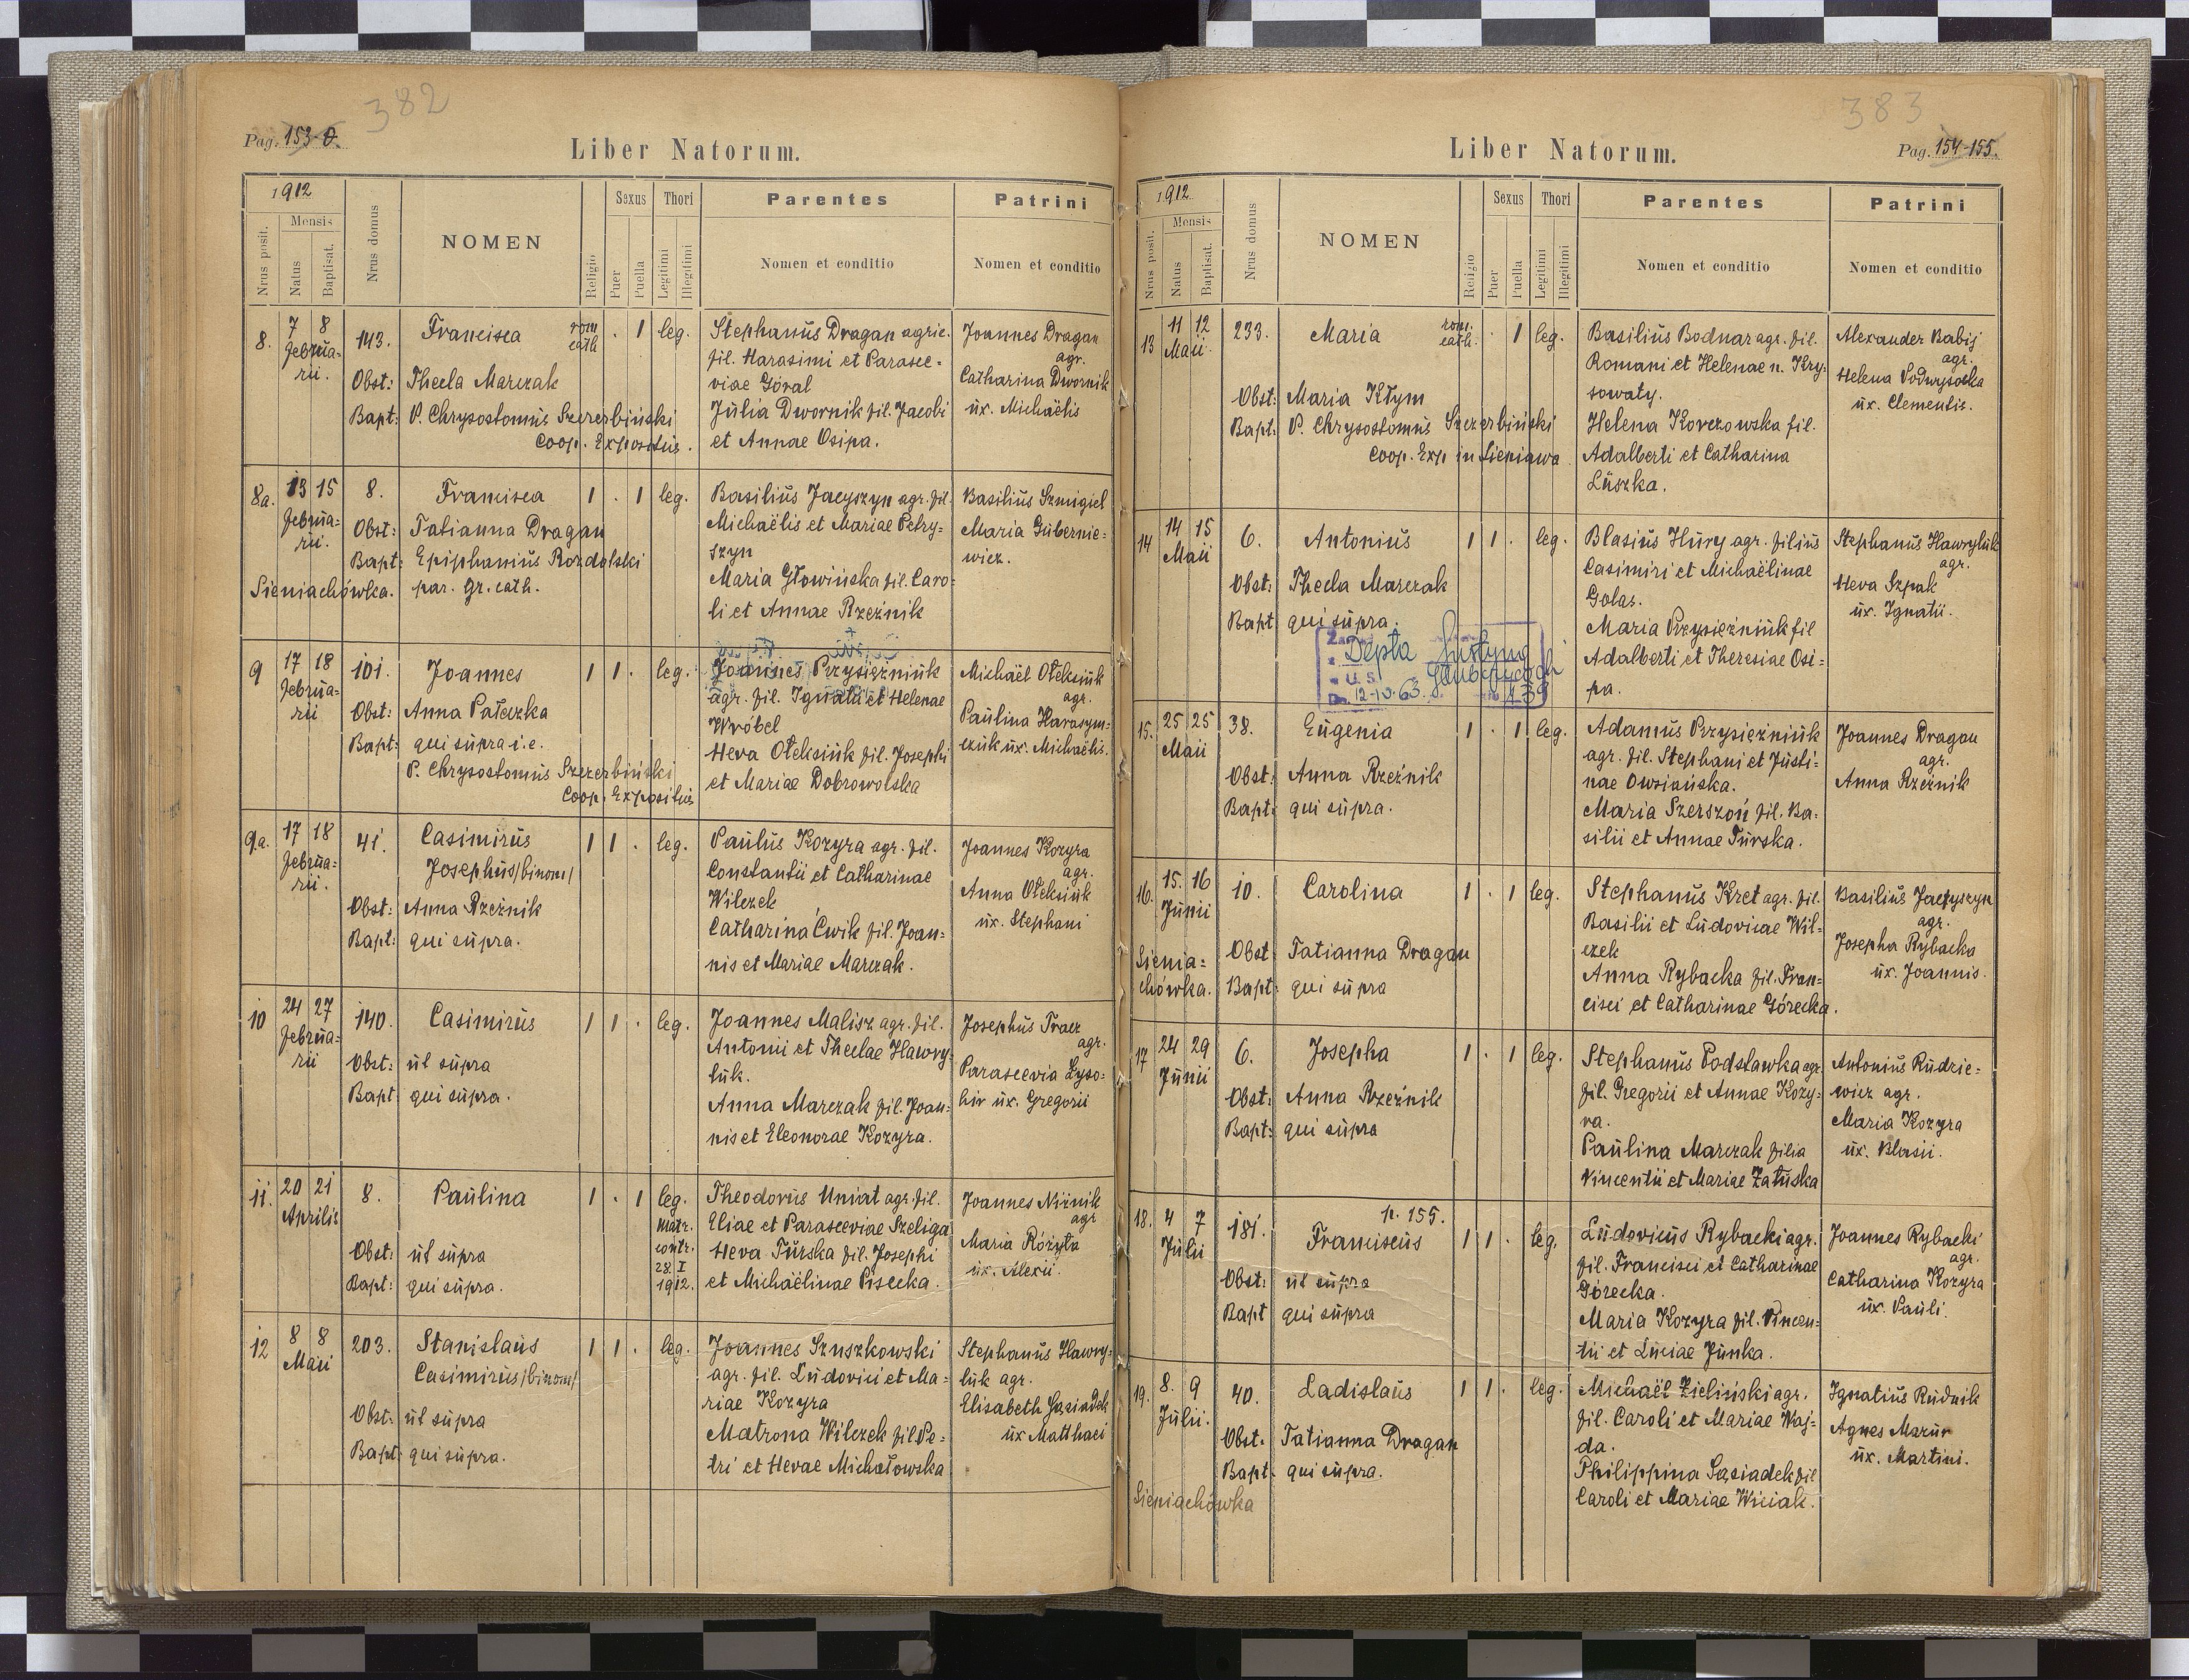 382
Pag. 153-0.
Liber Natorum.
1912
Nrus posit.
Mensis
Natus
Baptisat.
Nrus domus
NOMEN
Religio
Sexus
Puer
Puella
Thori
Legitimi
Illegitimi
Parentes
Nomen et conditio
Patrini
Nomen et conditio
8. 7 8 143. Francisca rom. cath . 1 leg. Stephanus Dragan agric. Joannes Dragan
Februa- fil. Harasimi et Parasce- agr.
rii. Obst: Thecla Marczak viae Góral Catharina Dwornik
Bapt: P. Chrysostomus Szczerbiński Julia Dwornik fil. Jacobi ux. Michaëlis
Coop. Expositus. et Annae Osipa.
8a. 13 15 8. Francisca 1 . 1 leg. Basilius Jacyszyn agr. fil. Basilius Szmigiel
Februa- Obst: Tatianna Dragan Michaëlis et Mariae Petry- Maria Gubernie-
rii. Bapt: Epiphanius Rozdolski szyn wicz.
Sieniachówka. par. gr. cath. Maria Głowińska fil. Caro-
li et Annae Rzeźnik
9 17 18 101. Joannes 1 1 . leg. Joannes Przysiężniuk Michaël Ołeksiuk
Februa- agr. fil. Ignatii et Helenae agr.
rii Obst: Anna Pałczka Wróbel Paulina Harasym-
Bapt: qui supra i.e. Heva Ołeksiuk fil. Josephi czuk ux. Michaëlis.
P. Chrysostomus Szczerbiński et Mariae Dobrowolska
Coop. Expositus
9.a. 17 18 41. Casimirus 1 1 . leg. Paulus Kozyra agr. fil. Joannes Kozyra
Februa- Josephus /binom/ Constantii et Catharinae agr.
rii. Obst: Anna Rzeźnik Wilczek Anna Ołeksiuk
Bapt: qui supra. Catharina Ćwik fil. Joan- ux. Stephani
nis et Mariae Marczak.
10 24 27 140. Casimirus 1 1 . leg. Joannes Malisz agr. fil. Josephus Tracz
Februa- Antonii et Theclae Hawry- agr.
rii Obst: ut supra luk. Parascevia Lyso-
Bapt: qui supra. Anna Marczak fil. Joan- hir ux. Gregorii
nis et Eleonorae Kozyra.
11. 20 21 8. Paulina 1 . 1 leg. Theodorus Uniat agr. fil. Joannes Niżnik
Aprilis matr. Eliae et Parasceviae Szeliga agr
Obst: ut supra contr. Heva Turska fil. Josephi Maria Różyła
Bapt: qui supra. 28. I 1912. et Michaëlinae Pisecka. ux. Alexii.
12 8 8 203. Stanislaus 1 1 . leg. Joannes Szuszkowski Stephanus Hawry-
Maii Casimirus /binom/ agr. fil. Ludovici et Ma- luk agr.
Obst: ut supra riae Kozyra Elisabeth Sąsiadek
Bapt: qui supra. Matrona Wilczek fil. Pe- ux Matthaei
tri et Hevae Michałowska
383
Liber Natorum.
Pag. 154-155.
1912.
Nrus posit.
Mensis
Natus
Baptisat.
Nrus domus
NOMEN
Religio
Sexus
Puer
Puella
Thori
Legitimi
Illegitimi
Parentes
Nomen et conditio
Patrini
Nomen et conditio
13 11 12 233. Maria rom. cath. . 1 leg. Basilius Bodnar agr. fil. Alexander Babij
Maii. Romani et Helenae n. Kry- agr.
Obst: Maria Kłym sowaty. Helena Podwysocka
Bapt: P. Chrysostomus Szczerbiński Helena Korczowska fil. ux. Clementis.
Coop. Exp in Sieniawa Adalberti et Catharina
Luszka.
14 14 15 6. Antonius 1 1 . leg. Blasius Hury agr. filius Stephanus Hawryluk
Maii Casimiri et Michaëlinae agr.
Obst: Thecla Marczak Golas. Heva Szpak
Bapt qui supra. Maria Przysiężniuk fil ux. Ignatii.
Depta Justyna Adalberti et Theresiae Osi-
U.S. Głubczycach pa.
12-10.63.
15. 25 25 38. Eugenia 1 . 1 leg. Adamus Przysiężniuk Joannes Dragan
Maii agr. fil. Stephani et Justi- agr.
Obst: Anna Rzeźnik nae Owsiańska. Anna Rzeźnik
Bapt: qui supra. Maria Szerszoń fil. Ba-
silii et Annae Turska.
16. 15. 16 10. Carolina 1 . 1 leg. Stephanus Kret agr. fil. Basilius Jacyszyn
Junii Basilii et Ludovicae Wil- agr.
Sienia- Obst: Tatianna Dragan czek Josepha Rybacka
chówka. Bapt: qui supra Anna Rybacka fil. Fran- ux. Joannis.
cisci et Catharinae Górecka.
17 24 29 6. Josepha 1 . 1 leg. Stephanus Podstawka agr. Antonius Rudzie-
Junii fil. Gregorii et Annae Kozy- wicz agr.
Obst: Anna Rzeźnik ra. Maria Kozyra
Bapt: qui supra Paulina Marczak filia ux. Blasii.
Vincentii et Mariae Załuska
18. 4 7 181. p. 155.
Julii Franciscus 1 1 . leg. Ludovicus Rybacki agr. Joannes Rybacki
Obst: ut supra fil. Francisci et Catharinae agr.
Bapt qui supra Górecka. Catharina Kozyra
Maria Kozyra fil. Vincen- ux. Pauli.
tii et Luciae Junka.
19. 8. 9 40. Ladislaus 1 1 . leg. Michaël Zieliński agr. Ignatius Rudnik
Julii. fil. Caroli et Mariae Waj- Agnes Mazur
Obst. Tatianna Dragan da. ux. Martini.
Bapt. qui supra. Philippina Sąsiadek fil
Sieniachówka Caroli et Mariae Wiciak.